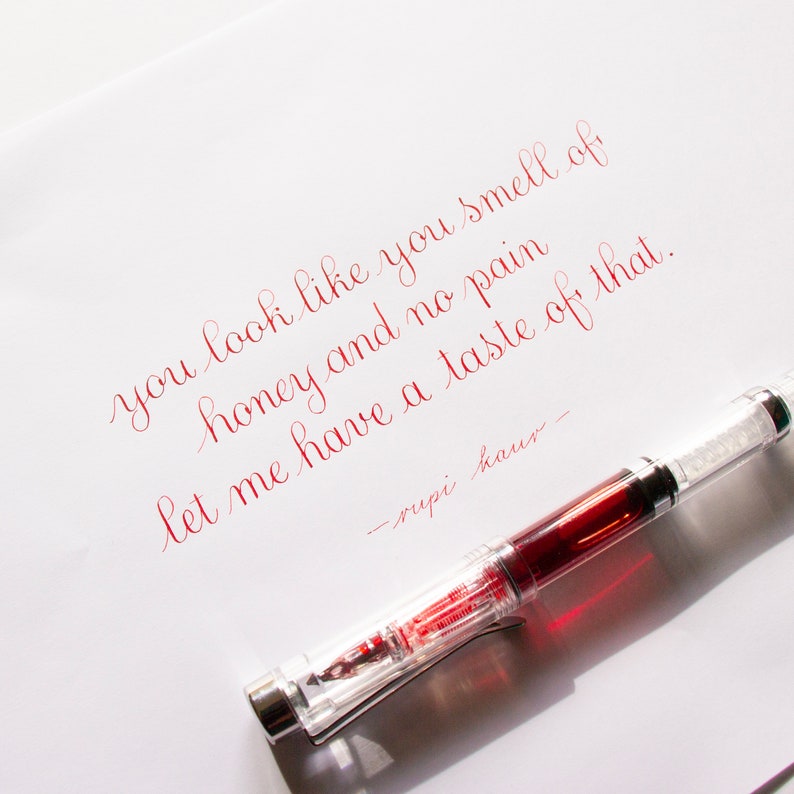 you look like you smell of
honey and no pain
let me have a taste of that.
- rupi kaur -